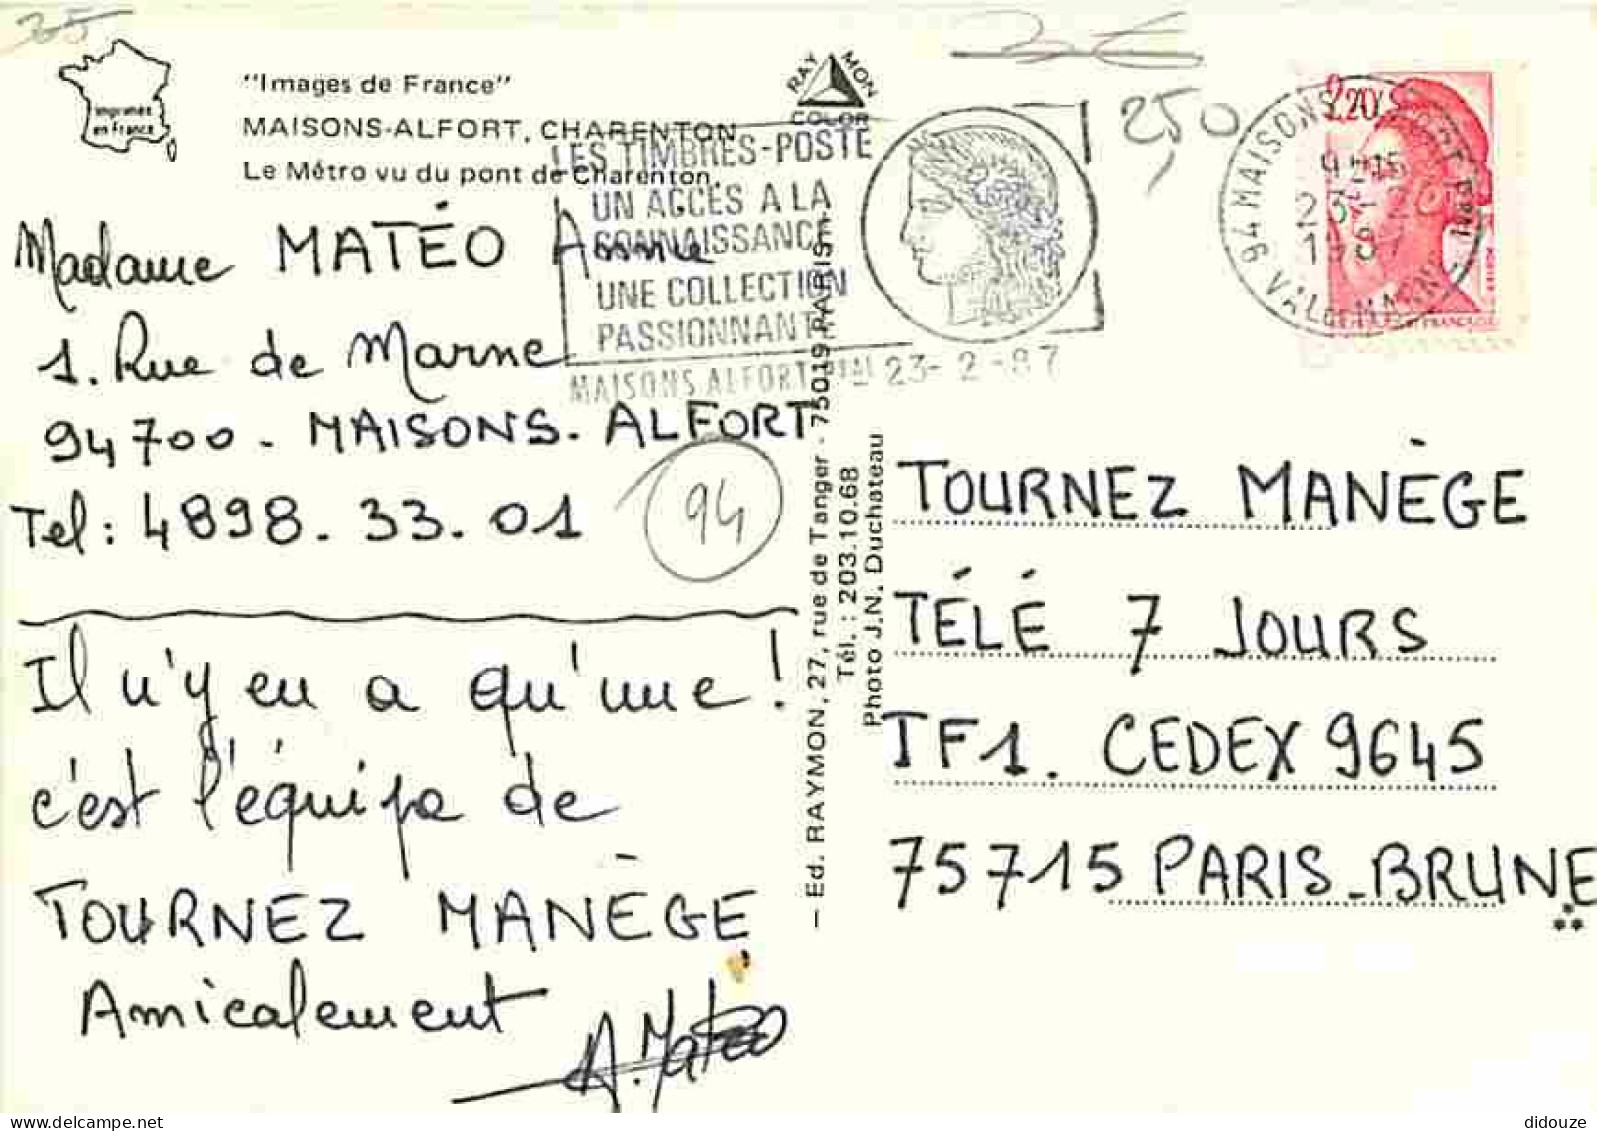 35
3€
2,50
imprimée
en France
"Images de France"
MAISONS-ALFORT, CHARENTON
Le Métro vu du pont de Charenton.
RAY MON
COLOR
LES TIMBRES-POSTE
UN ACCÈS A LA
CONNAISSANCE
UNE COLLECTION
PASSIONNANTE
MAISONS ALFORT PPAL 23-2-87
2,20
94 MAISONS ALFORT PPAL
23-2
1987
VAL de MARNE
Madame MATÉO Anne
1. Rue de Marne
94700 - MAISONS-ALFORT
Tel: 4898.33.01
94
Il n'y en a qu'une!
c'est l'équipe de
TOURNEZ MANÈGE
Amicalement
A. Matéo
— Ed. RAYMON, 27, rue de Tanger - 75019 PARIS —
Tél. : 203.10.68
Photo J.N. Duchateau
TOURNEZ MANÈGE
TÉLÉ 7 JOURS
TF1. CEDEX 9645
75715 PARIS-BRUNE
didouze @ delcampe.net